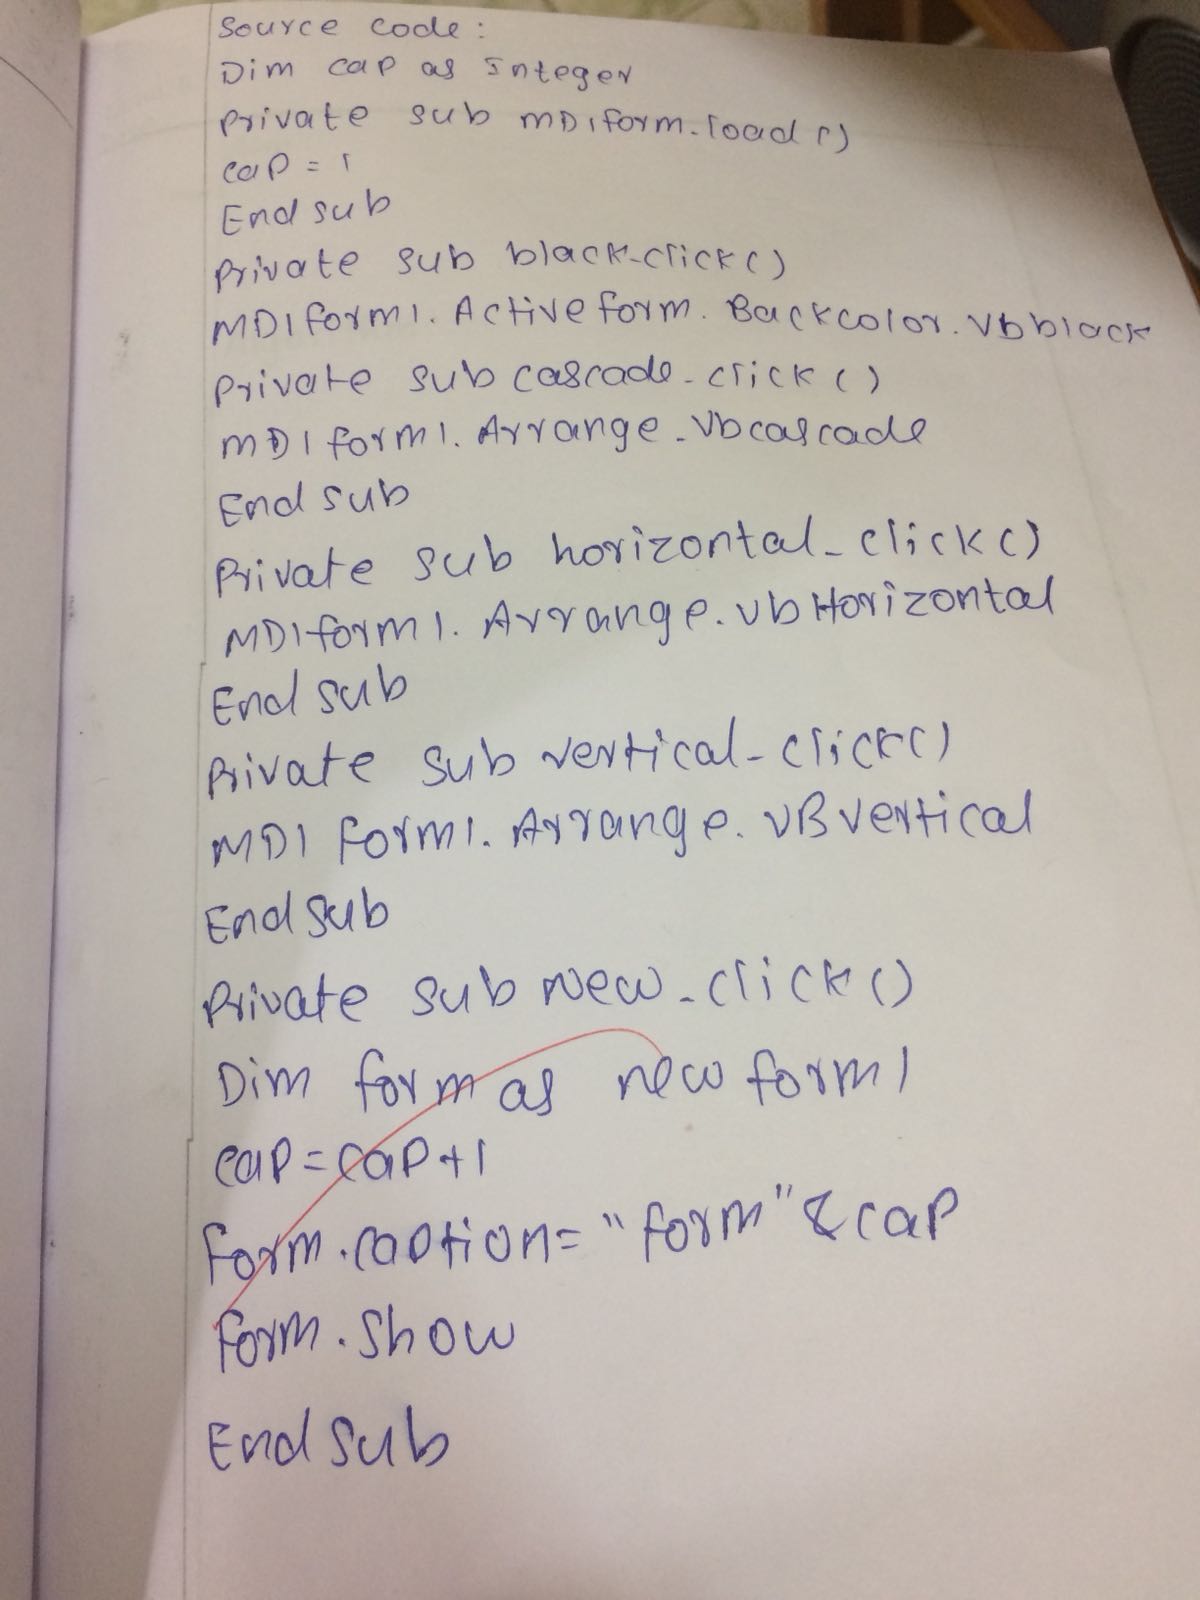 Source code:
Dim cap as Integer
Private sub MDIform-load()
cap = 1
End sub
Private sub black-click()
MDIform1. Active form. Backcolor. Vbblack
Private sub cascade-click()
MDI form1. Arrange-Vbcascade
End sub
Private sub horizontal-click()
MDIform1. Arrange. vbHorizontal
End sub
Private sub vertical-click()
MDI form1. Arrange. VBvertical
End sub
Private sub New-click()
Dim form as new form1
cap=cap+1
form.caption= "form" & cap
form. show
End sub